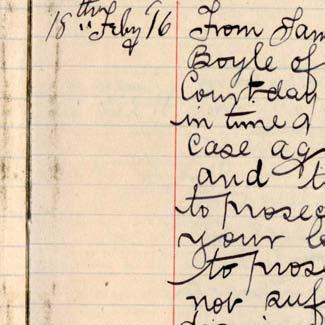 18th Feby 96 From Jam
Boyle of
Court day
in time a
case ag
and t
to prosec
your le
to pros
not suf